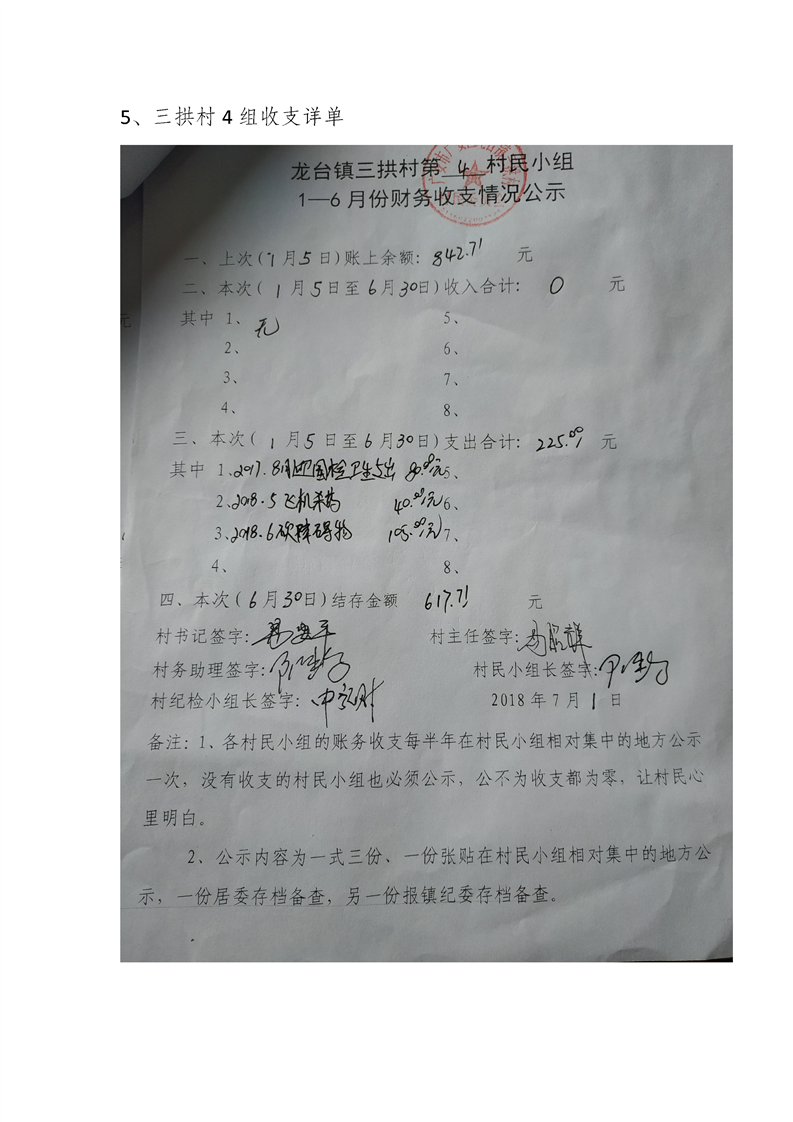 5、三拱村 4 组收支详单
龙台镇三拱村第 4 村民小组
1—6 月份财务收支情况公示
一、上次(1月5日)账上余额：842.71 元
二、本次( 1月5日至6月30日)收入合计： 0 元
其中 1、无 5、
2、 6、
3、 7、
4、 8、
三、本次( 1月5日至6月30日)支出合计：225.00 元
其中 1、2017.8月迎国检卫生支出 80.00元 5、
2、2018.5飞机杀药 40.00元 6、
3、2018.6砍障碍物 105.00元 7、
4、 8、
四、本次(6月30日)结存金额 617.71 元
村书记签字：
村主任签字：
村务助理签字：
村民小组长签字：
村纪检小组长签字：
2018 年 7 月 1 日
备注：1、各村民小组的账务收支每半年在村民小组相对集中的地方公示
一次，没有收支的村民小组也必须公示，公不为收支都为零，让村民心
里明白。
2、公示内容为一式三份、一份张贴在村民小组相对集中的地方公
示，一份居委存档备查，另一份报镇纪委存档备查。